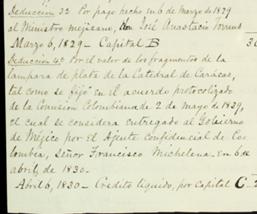 Deduccion 3ª Por pago hecho en 6 de marzo de 1829
al Ministro mejicano, Don José Anastacio Torrens
Marzo 6, 1829 — Capital B
Deduccion 4ª Por el valor de los fragmentos de la
lampara de plata de la Catedral de Caracas,
tal como se fijó en el acuerdo protocolizado
de la Comision Colombiana de 2 de mayo de 1829,
el cual se considera entregado al Gobierno
de Méjico por el Ajente Confidencial de Co-
lombia, Señor Francisco Michelena en 6 de
abril de 1830.
Abril 6, 1830 — Credito líquido, por Capital C